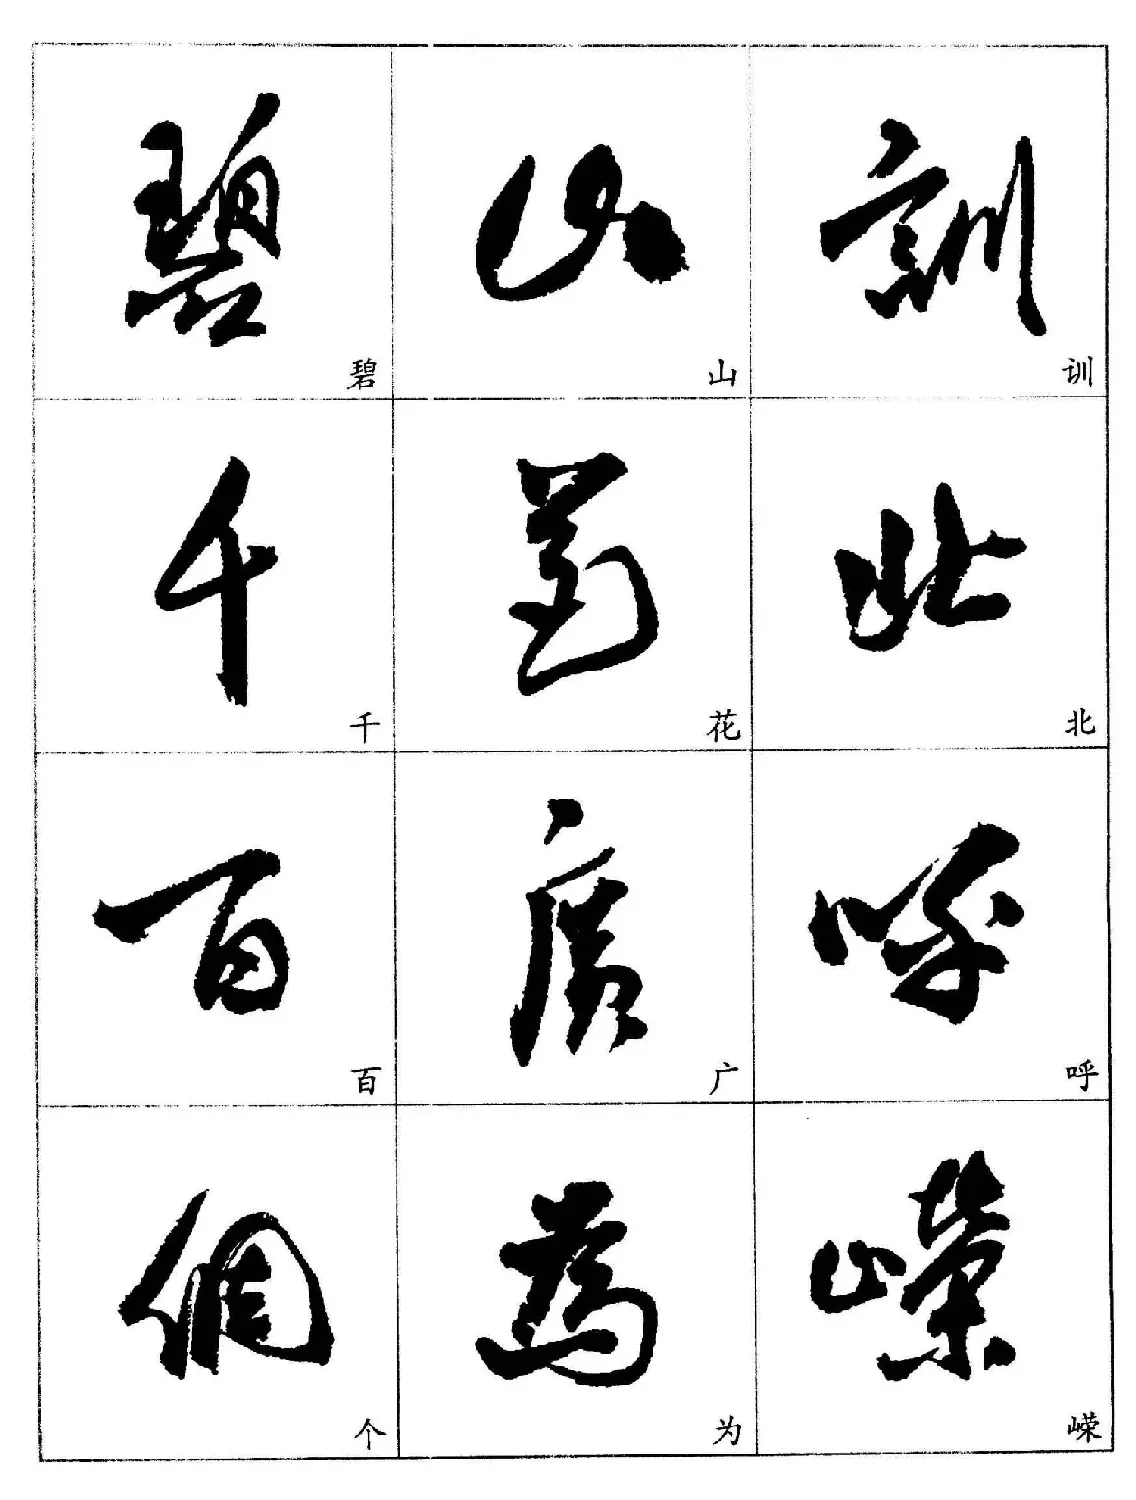 碧 山 訓
碧 山 训
千 花 北
千 花 北
百 廣 呼
百 广 呼
個 為 嶸
个 为 嵘